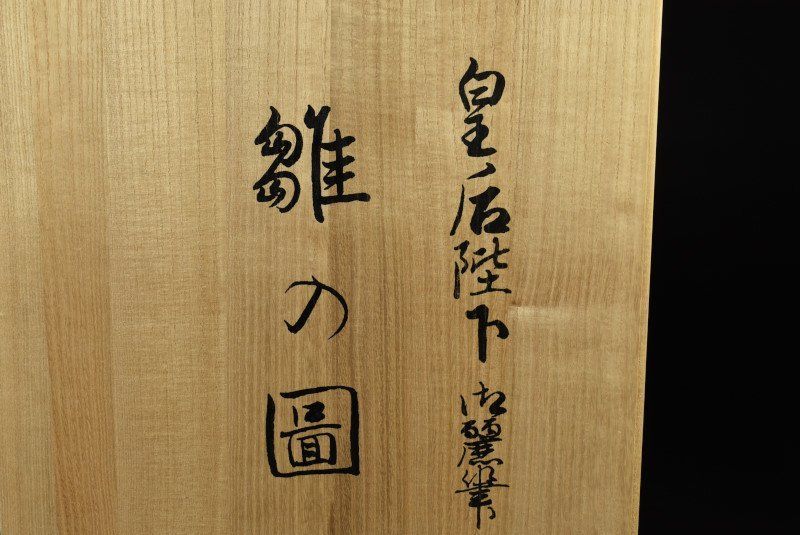 皇后陛下 御麗筆
雛の圖